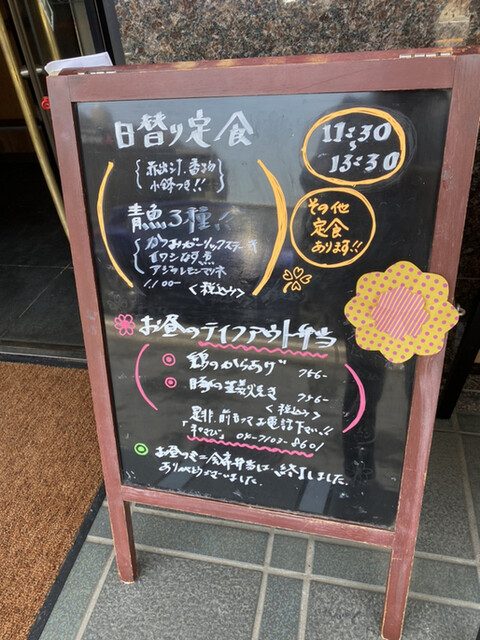 日替り定食
11:30
〜
13:30
赤出汁、香物
小鉢つき!!
青魚3種!!
かつおガーリックステーキ
イワシなす煮
アジのレモンマリネ
1,100- <税込み>
その他
定食
あります!!
お昼のテイクアウト弁当
鶏のからあげ 756-
豚の生姜焼き 756-
<税込み>
是非、前もってお電話下さい!!
04-7103-8601
お昼のミニ会席弁当は、終了しました。
ありがとうございました。